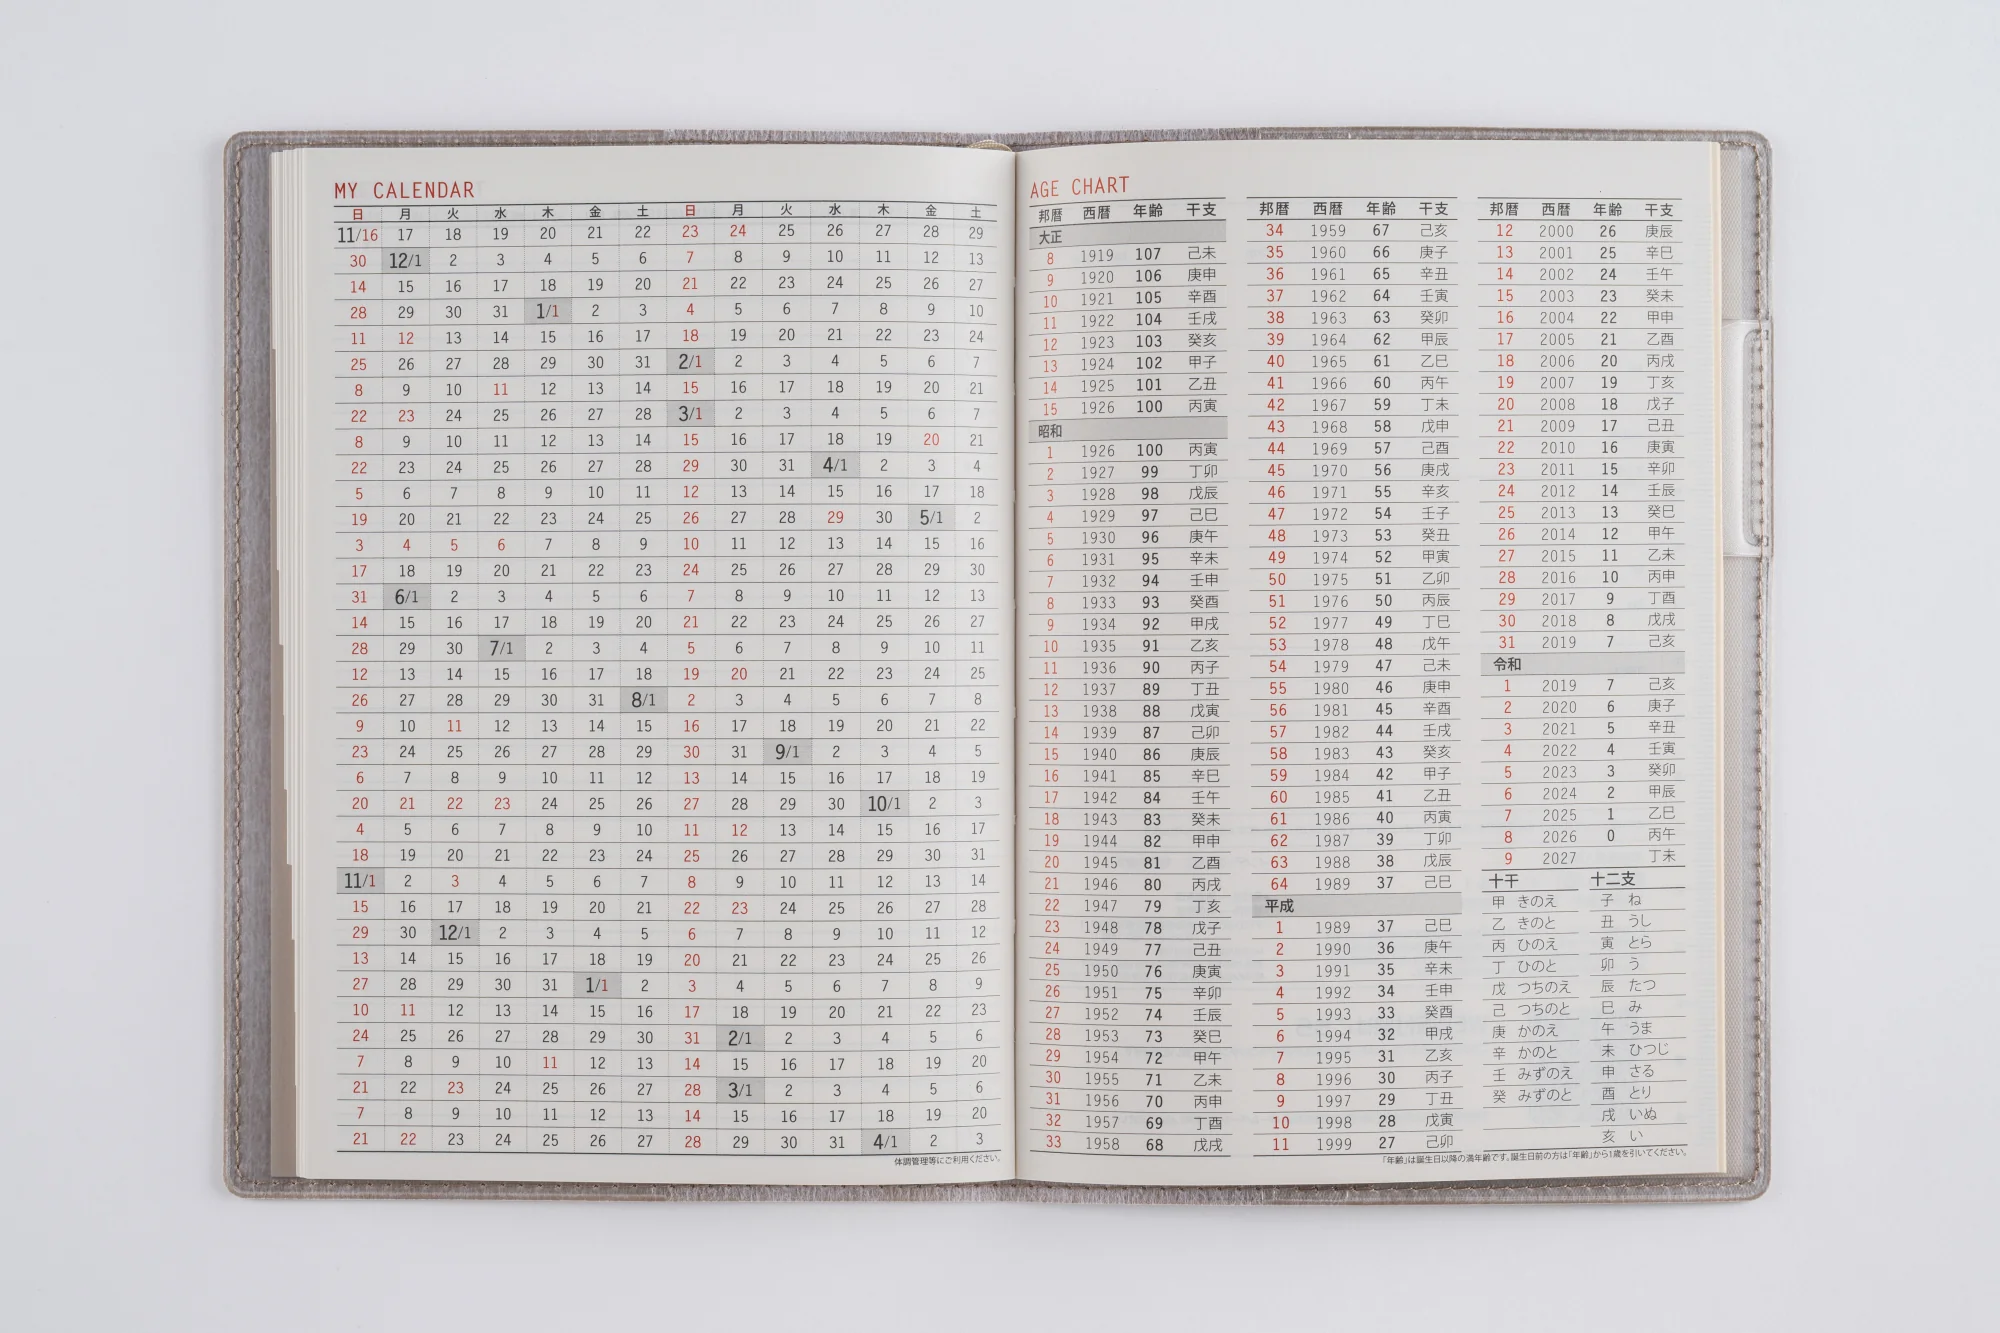 MY CALENDAR
日 月 火 水 木 金 土 日 月 火 水 木 金 土
11/16 17 18 19 20 21 22 23 24 25 26 27 28 29
30 12/1 2 3 4 5 6 7 8 9 10 11 12 13
14 15 16 17 18 19 20 21 22 23 24 25 26 27
28 29 30 31 1/1 2 3 4 5 6 7 8 9 10
11 12 13 14 15 16 17 18 19 20 21 22 23 24
25 26 27 28 29 30 31 2/1 2 3 4 5 6 7
8 9 10 11 12 13 14 15 16 17 18 19 20 21
22 23 24 25 26 27 28 3/1 2 3 4 5 6 7
8 9 10 11 12 13 14 15 16 17 18 19 20 21
22 23 24 25 26 27 28 29 30 31 4/1 2 3 4
5 6 7 8 9 10 11 12 13 14 15 16 17 18
19 20 21 22 23 24 25 26 27 28 29 30 5/1 2
3 4 5 6 7 8 9 10 11 12 13 14 15 16
17 18 19 20 21 22 23 24 25 26 27 28 29 30
31 6/1 2 3 4 5 6 7 8 9 10 11 12 13
14 15 16 17 18 19 20 21 22 23 24 25 26 27
28 29 30 7/1 2 3 4 5 6 7 8 9 10 11
12 13 14 15 16 17 18 19 20 21 22 23 24 25
26 27 28 29 30 31 8/1 2 3 4 5 6 7 8
9 10 11 12 13 14 15 16 17 18 19 20 21 22
23 24 25 26 27 28 29 30 31 9/1 2 3 4 5
6 7 8 9 10 11 12 13 14 15 16 17 18 19
20 21 22 23 24 25 26 27 28 29 30 10/1 2 3
4 5 6 7 8 9 10 11 12 13 14 15 16 17
18 19 20 21 22 23 24 25 26 27 28 29 30 31
11/1 2 3 4 5 6 7 8 9 10 11 12 13 14
15 16 17 18 19 20 21 22 23 24 25 26 27 28
29 30 12/1 2 3 4 5 6 7 8 9 10 11 12
13 14 15 16 17 18 19 20 21 22 23 24 25 26
27 28 29 30 31 1/1 2 3 4 5 6 7 8 9
10 11 12 13 14 15 16 17 18 19 20 21 22 23
24 25 26 27 28 29 30 31 2/1 2 3 4 5 6
7 8 9 10 11 12 13 14 15 16 17 18 19 20
21 22 23 24 25 26 27 28 3/1 2 3 4 5 6
7 8 9 10 11 12 13 14 15 16 17 18 19 20
21 22 23 24 25 26 27 28 29 30 31 4/1 2 3
体調管理等にご利用ください。
AGE CHART
邦暦 西暦 年齢 干支
大正
8 1919 107 己未
9 1920 106 庚申
10 1921 105 辛酉
11 1922 104 壬戌
12 1923 103 癸亥
13 1924 102 甲子
14 1925 101 乙丑
15 1926 100 丙寅
昭和
1 1926 100 丙寅
2 1927 99 丁卯
3 1928 98 戊辰
4 1929 97 己巳
5 1930 96 庚午
6 1931 95 辛未
7 1932 94 壬申
8 1933 93 癸酉
9 1934 92 甲戌
10 1935 91 乙亥
11 1936 90 丙子
12 1937 89 丁丑
13 1938 88 戊寅
14 1939 87 己卯
15 1940 86 庚辰
16 1941 85 辛巳
17 1942 84 壬午
18 1943 83 癸未
19 1944 82 甲申
20 1945 81 乙酉
21 1946 80 丙戌
22 1947 79 丁亥
23 1948 78 戊子
24 1949 77 己丑
25 1950 76 庚寅
26 1951 75 辛卯
27 1952 74 壬辰
28 1953 73 癸巳
29 1954 72 甲午
30 1955 71 乙未
31 1956 70 丙申
32 1957 69 丁酉
33 1958 68 戊戌
邦暦 西暦 年齢 干支
34 1959 67 己亥
35 1960 66 庚子
36 1961 65 辛丑
37 1962 64 壬寅
38 1963 63 癸卯
39 1964 62 甲辰
40 1965 61 乙巳
41 1966 60 丙午
42 1967 59 丁未
43 1968 58 戊申
44 1969 57 己酉
45 1970 56 庚戌
46 1971 55 辛亥
47 1972 54 壬子
48 1973 53 癸丑
49 1974 52 甲寅
50 1975 51 乙卯
51 1976 50 丙辰
52 1977 49 丁巳
53 1978 48 戊午
54 1979 47 己未
55 1980 46 庚申
56 1981 45 辛酉
57 1982 44 壬戌
58 1983 43 癸亥
59 1984 42 甲子
60 1985 41 乙丑
61 1986 40 丙寅
62 1987 39 丁卯
63 1988 38 戊辰
64 1989 37 己巳
平成
1 1989 37 己巳
2 1990 36 庚午
3 1991 35 辛未
4 1992 34 壬申
5 1993 33 癸酉
6 1994 32 甲戌
7 1995 31 乙亥
8 1996 30 丙子
9 1997 29 丁丑
10 1998 28 戊寅
11 1999 27 己卯
邦暦 西暦 年齢 干支
12 2000 26 庚辰
13 2001 25 辛巳
14 2002 24 壬午
15 2003 23 癸未
16 2004 22 甲申
17 2005 21 乙酉
18 2006 20 丙戌
19 2007 19 丁亥
20 2008 18 戊子
21 2009 17 己丑
22 2010 16 庚寅
23 2011 15 辛卯
24 2012 14 壬辰
25 2013 13 癸巳
26 2014 12 甲午
27 2015 11 乙未
28 2016 10 丙申
29 2017 9 丁酉
30 2018 8 戊戌
31 2019 7 己亥
令和
1 2019 7 己亥
2 2020 6 庚子
3 2021 5 辛丑
4 2022 4 壬寅
5 2023 3 癸卯
6 2024 2 甲辰
7 2025 1 乙巳
8 2026 0 丙午
9 2027 丁未
十干 十二支
甲 きのえ 子 ね
乙 きのと 丑 うし
丙 ひのえ 寅 とら
丁 ひのと 卯 う
戊 つちのえ 辰 たつ
己 つちのと 巳 み
庚 かのえ 午 うま
辛 かのと 未 ひつじ
壬 みずのえ 申 さる
癸 みずのと 酉 とり
戌 いぬ
亥 い
「年齢」は誕生日以降の満年齢です。誕生日前の方は「年齢」から1歳を引いてください。